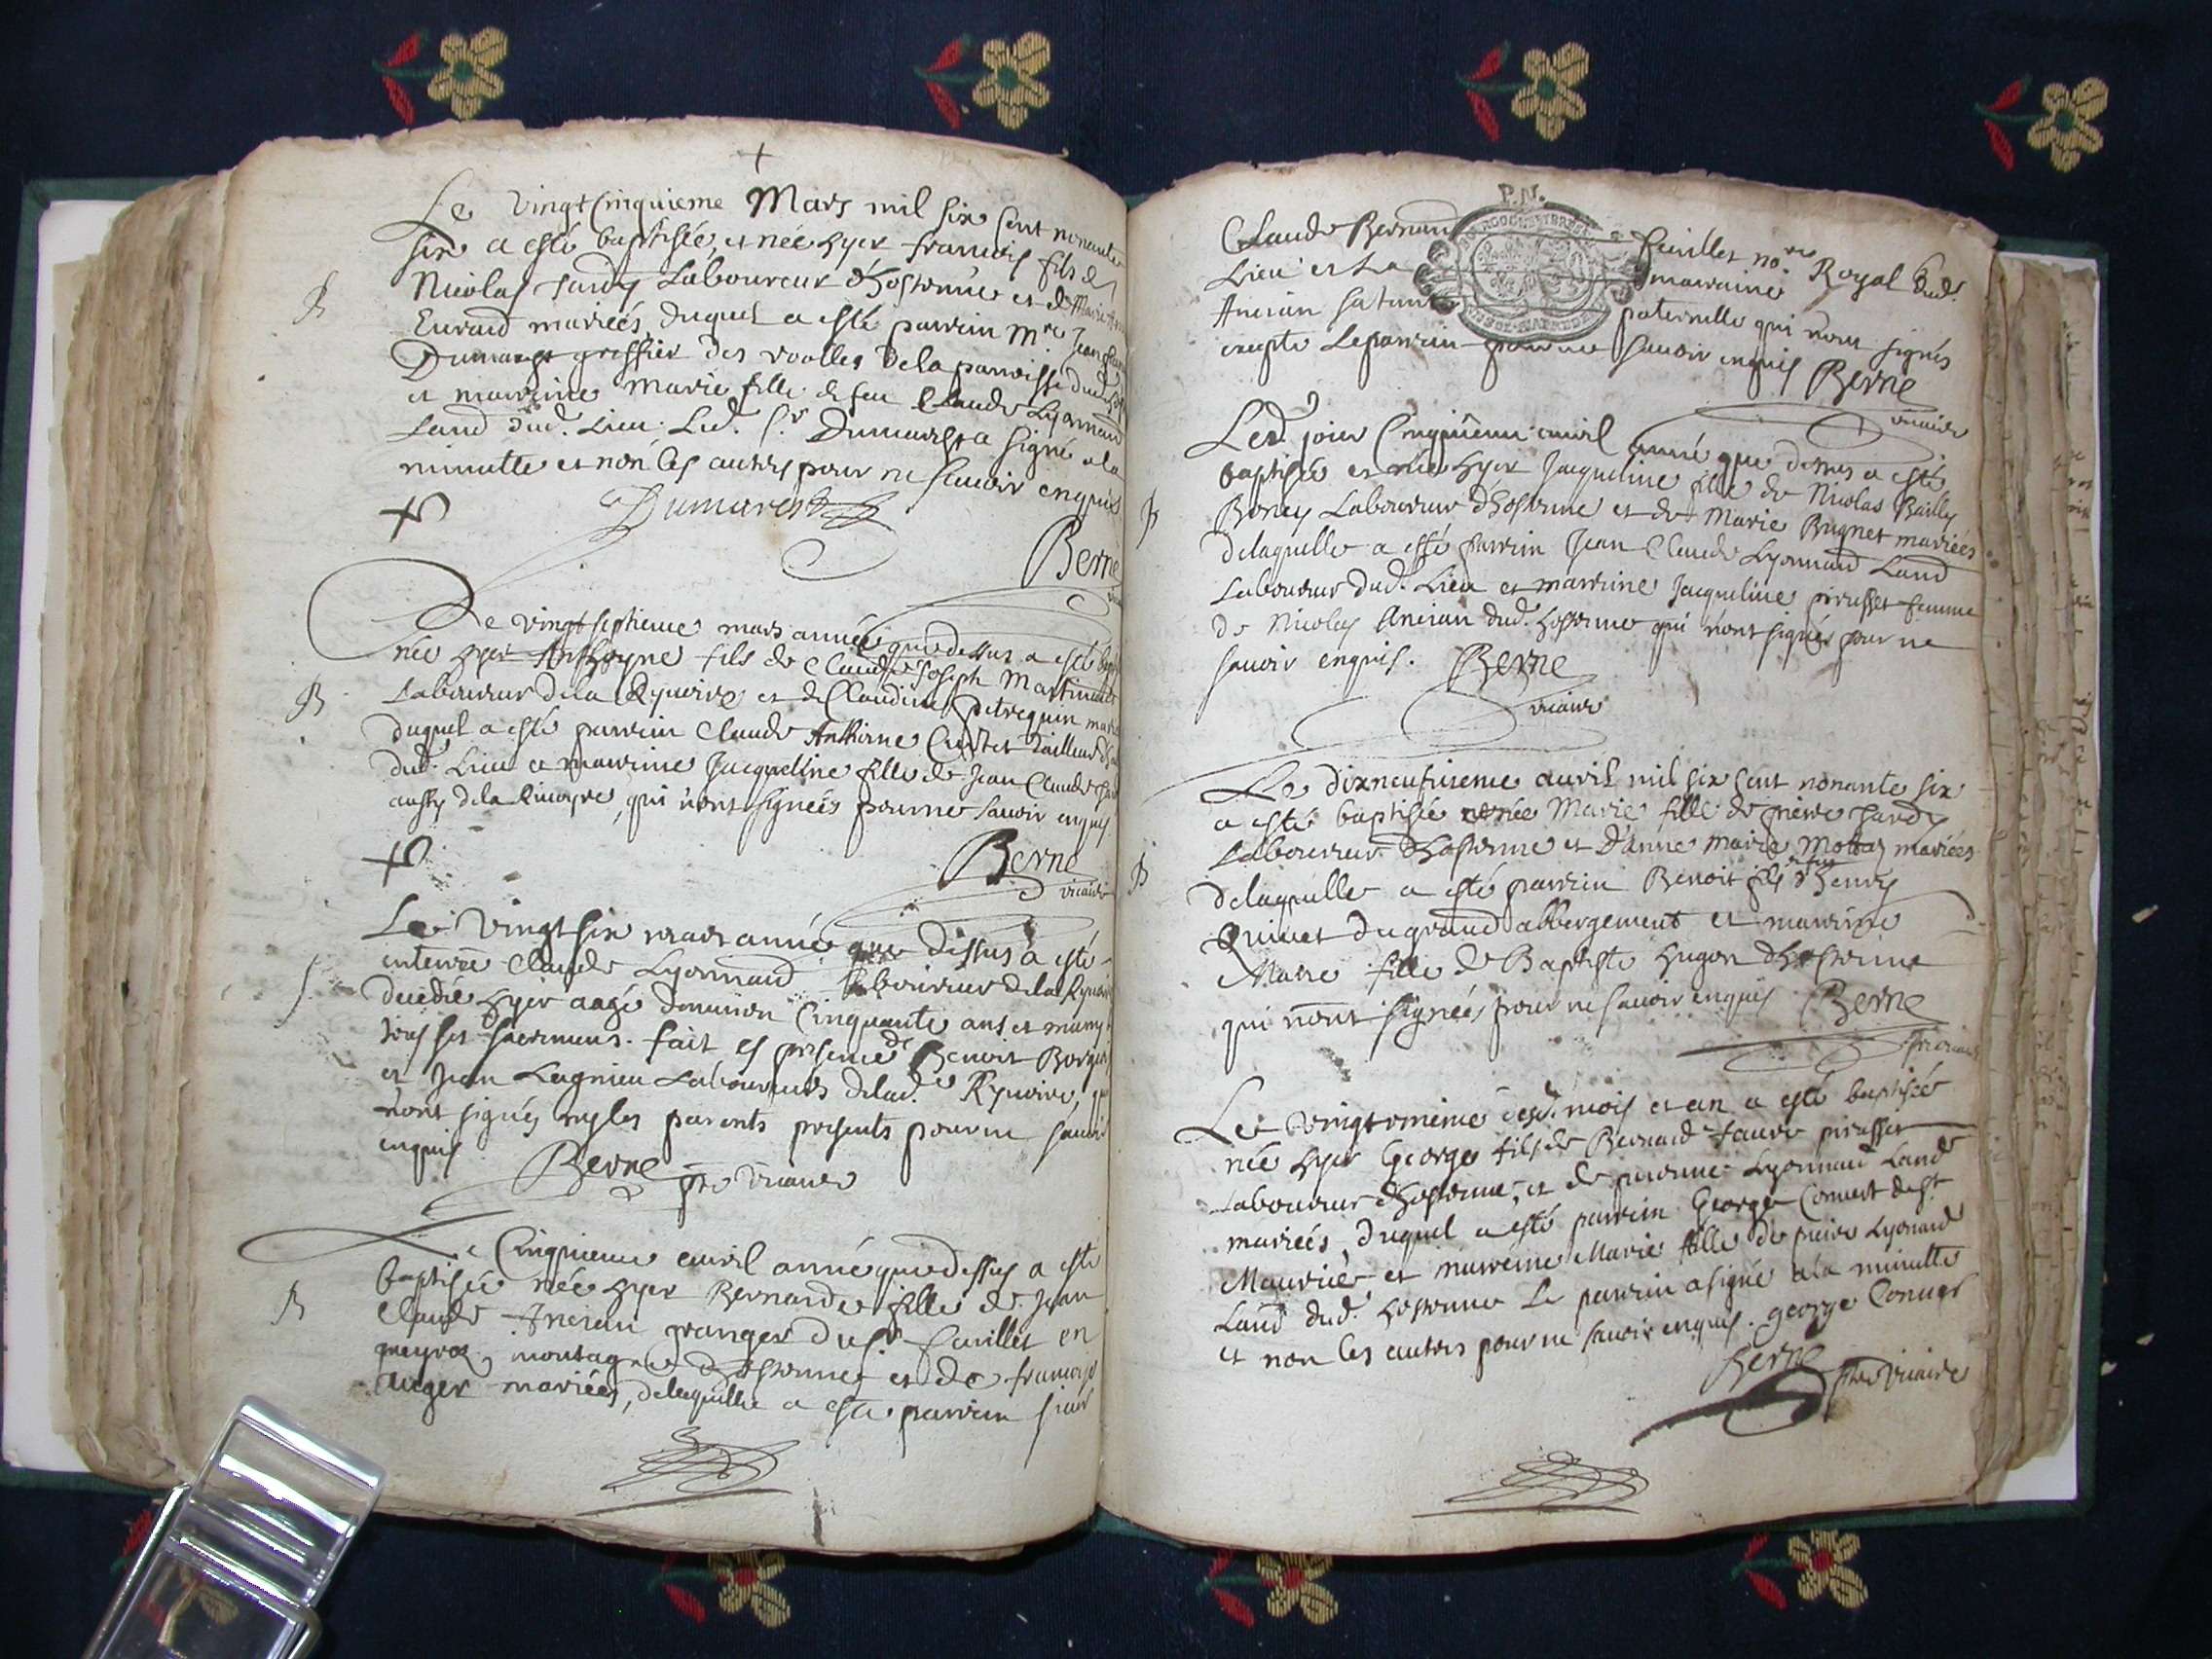 Le vingt cinquieme Mars mil six cent nonante
six a esté baptisée, et née hyer francois fils de
Nicolas Jardy Laboureur d'hostonne et de Marie
Evraud mariéés, duquel a esté parrin Mre Jean
Dumarest greffier des roolles de la parroisse dud.
et marrine Marie fille de feu Claude Lyonnard
Land dud. Lieu. Led. Sr Dumarest a signé a la
minutte et non les autres pour ne scavoir enquis
Dumarest
Berne
Le vingt septieme mars année que dessus a esté
née hyer Anthoyne fils de Claude Joseph Martinand
Laboureur de la Ryvoire et de Claudine petrequin
duquel a esté parrin Claude Anthoine tailleur
dud. Lieu et marrine Jacqueline fille de Jean Claude
aussy de la Rivoyre, qui n'ont signéés pour ne savoir enquis
Berne
vicaire
Le vingt six mars année que dessus a esté
enterrée Claude Lyonnard Laboureur de la Ryvoire
decedié hyer aagé d'environ Cinquante ans et muny
tous ses sacremens. fait en presence de Benoit
et Jean Lagnieu Laboureurs de lad. Ryvoire, qui
n'ont signés ny les parents presents pour ne savoir
enquis
Berne ptre vicaire
Le Cinquieme avril année que dessus a esté
baptisée née hyer Bernarde fille de Jean
Claude Ancian granger du Sr Favillet en
meyroz montagne d'hostonne et de francoyse
auger mariéés, delaquelle a esté parrin sieur
P.N.
Claude Bernard favillet nore Royal dud.
Lieu et La marraine
Ancian sa tante paternelle qui n'ont signés
excepté Le parrin pour ne scavoir enquis
Berne
vicaire
Led. jour Cinquieme avril année que dessus a esté
baptisée et née hyer Jacqueline fille de Nicolas Bailly
Boney Laboureur d'hostonne et de Marie Brignet mariéés
delaquelle a esté parrin Jean Claude Lyonnard Land
Laboureur dud. Lieu et marrine Jacqueline pirasset femme
de Nicolas Ancian dud. hostonne qui n'ont signés pour ne
savoir enquis. Berne
vicaire
Le dixneufvieme avril mil six cent nonante six
a esté baptisée et née Marie fille de pierre Jardy
Laboureur d'hostonne et d'anne marie Mottaz mariéés
delaquelle a esté parrin Benoit fils de feu d'henry
Quinet du grand abbergement et marrine
Marie fille de Baptiste hugon d'hostonne
qui n'ont signéés pour ne savoir enquis Berne
Le vingtvnieme desd. mois et an a esté baptisée
née hyer George fils de Bernard faure pirasset
Laboureur d'hostonne, et de pierrone Lyonnard Land
mariéés, duquel a esté parrin George Convert de St
Mauricé et marreine Marie fille de pierre Lyonard
Land dud. hostonne Le parrin a signé a la minutte
et non les autres pour ne savoir enquis. george Convert
Berne
ptre vicaire